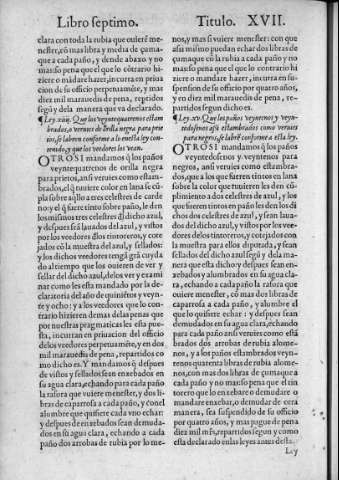 Libro septimo.
Titulo. XVII.
clara con toda la rubia que quierẽ me-
nester, cõ mas libra y media de çumá-
que a cada paño, y dende abaxo y no
mas: so pena que el que lo cõtrario hi-
ziere o mãdare hazer, incurra en sus-
pension de su officio perpetuamẽte, y mas
diez mil marauedis de pena, repartidos
segũ y dela manera que va declarado.
¶Ley.xiiij. Que los veyntequatrenos estam
brados, o verues de orilla negra para prie
tos, se labren conforme a lo enesta ley con-
tenido, y que los veedores los vean.
OTROSI mandamos q̃ los paños
veyntequatrenos de orilla negra
para prietos, ansi verues como estam-
brados, el q̃ quiere color en lana se cũ-
pla sobre aq̃llo a tres celestres de carde
no y el q̃ sacre tinto sobre paño, le den
los mismos tres celestres dl dicho azul,
y despues seã lauados del azul, y vistos
por los veedores dlos tintoreros, y cote-
jados cõ la muestra del azul, y sellados:
y los dichos veedores tengã grã cuyda
do al tiempo que los ouieren de ver y
sellar del dicho azul, delos ver y exami
nar como les esta mandado por la de-
claratoria del año de quiniẽtos y veyn-
te y ocho: y a los veedores que lo con-
trario hizieren demas delas penas que
por nuestras pragmaticas les està pue-
sta, incurran en priuacion del officio
delos veedores perpetuamẽte, y en dos
mil marauedis de pena, repartidos co
mo dicho es. Y mandamos q̃ despues
de vistos y sellados sean enxebados en
su agua clara, echando para cada paño
la rasura que vuiere menester, y dos li-
bras de caparrosa a cada paño, y con el
alumbre que quisiere cada vno echar:
y despues de enxebados sean demudados
en su agua clara, echando a cada
paño dos arrobas de rubia por lo me-
nos, y mas si vuiere menester: con que
assi mismo puedan echar dos libras de
çumaque cõ la rubia a cada paño y no
mas: so pena que el que lo contrario hi
ziere o mandare hazer, incurra en su-
spension de su officio por quatro años,
y en diez mil marauedis de pena, re-
partidos segun dicho es.
¶Ley.xv. Que los paños veyntenos y veyn-
tedosenos assi estambrados como verues
para negros, se labrẽ conforme a esta ley.
OTROSI mandamos q̃ los paños
veyntedosenos y veyntenos para
negros, ansi verues como estambra-
dos, que a los que fueren tintos en lana
sobre la color que tuuieren les den cũ-
plimiento a dos celestres de azul, y los
que fueren tintos en paño les den los di
chos dos celestres de azul, y sean laua-
dos del dicho azul, y vistos por los vee-
dores delos tintoreros, y cotejados con
la muestra para ellos diputada, y sean
sellados del dicho azul segũ y dela ma-
nera que esta dicho: y despues sean en-
xebados y alumbrados en su agua cla-
ra, echando a cada paño la rasura que
quiere menester, cõ mas dos libras de
caparrosa a cada paño, y alumbre el
que lo quisiere echar: y despues sean
demudados en su agua clara, echando
para cada paño ansi verues como està
brados dos arrobas de rubia alome-
nos, y a los paños estambrados veyn-
tenos quarenta libras de rubia alome-
nos, con mas dos libras de çumaque a
cada paño y no mas: so pena que el tin
torero que lo enxebare o demudare o
mandare enxebar, o demudar de otra
manera, sea suspendido de su officio
por quatro años, y mas pague de pena
diez mil mrs, repartidos segun y como
esta declarado en las leyes antes desta.
Ley